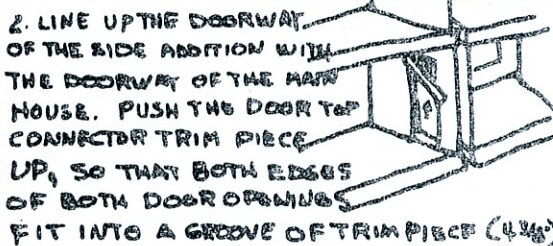 2. LINE UP THE DOORWAY
OF THE SIDE ADDITION WITH
THE DOORWAY OF THE MAIN
HOUSE. PUSH THE DOOR TOP
CONNECTOR TRIM PIECE
UP, SO THAT BOTH EDGES
OF BOTH DOOR OPENINGS
FIT INTO A GROOVE OF TRIM PIECE